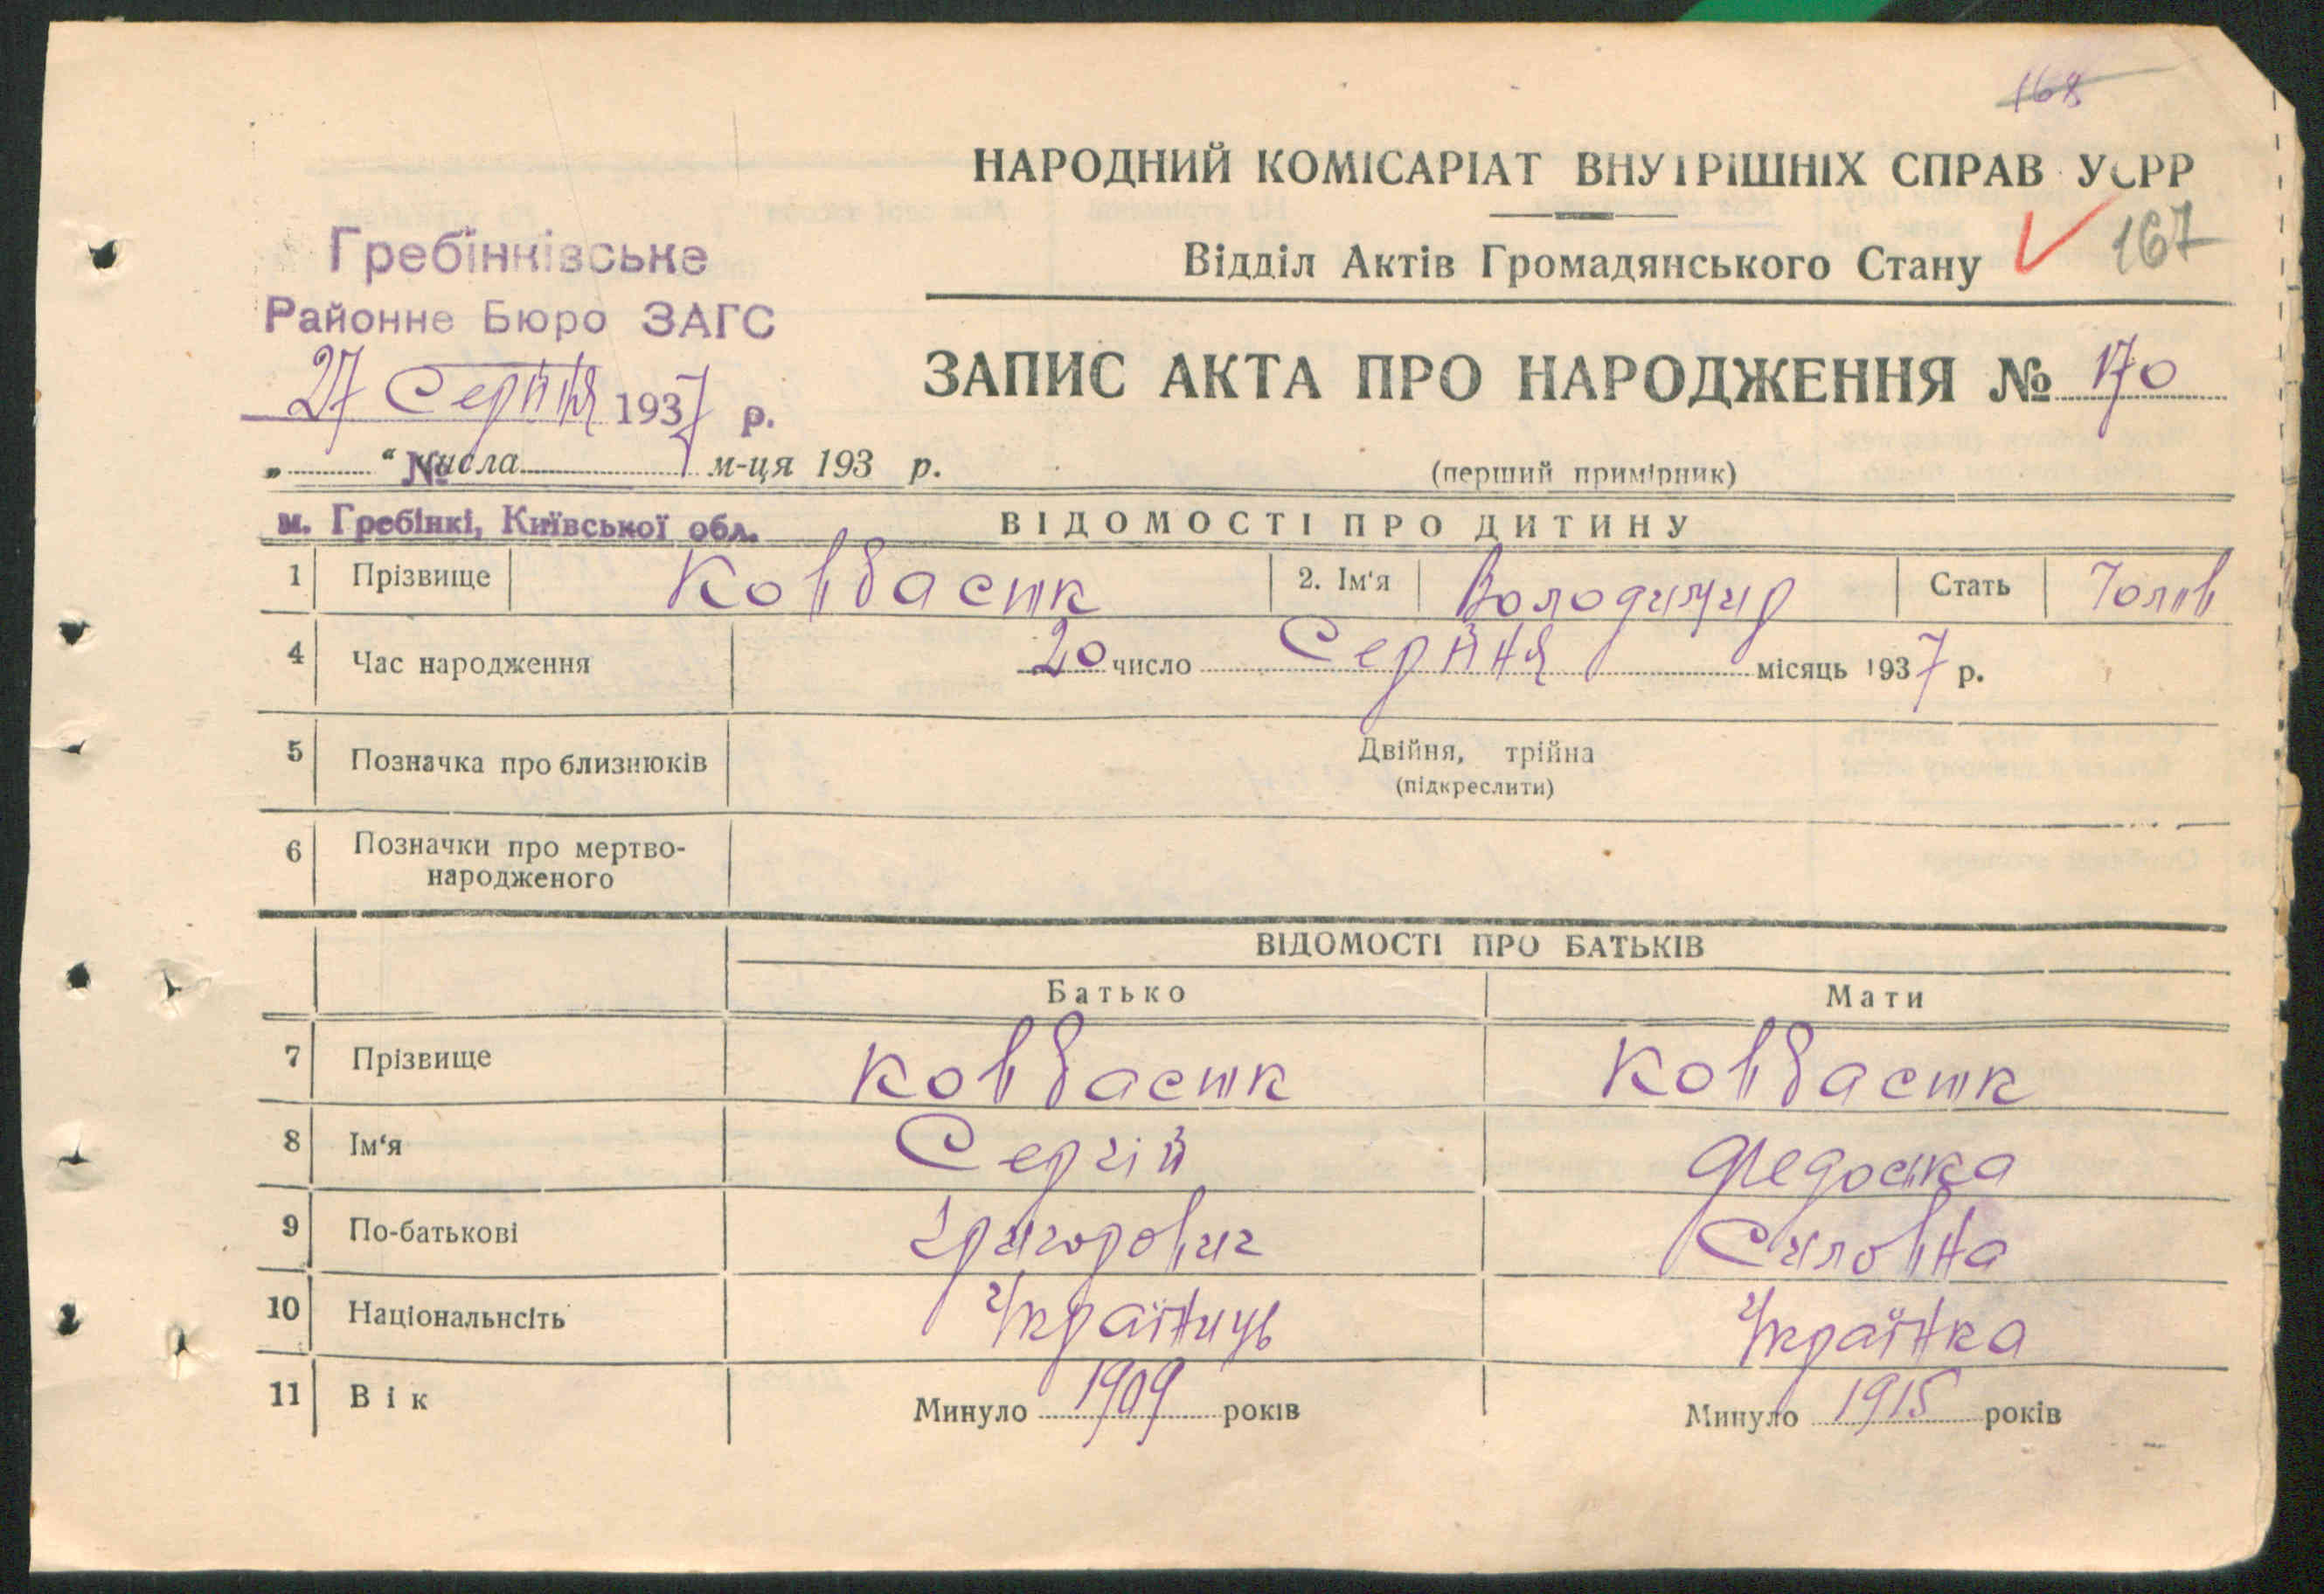 168
НАРОДНИЙ КОМІСАРІАТ ВНУТРІШНІХ СПРАВ УСРР
167
Відділ Актів Громадянського Стану
Гребінківське
Районне Бюро ЗАГС
27 Серпня 1937 р.
ЗАПИС АКТА ПРО НАРОДЖЕННЯ № 170
„ “ числа м-ця 193 р.
№
(перший примірник)
м. Гребінкі, Київської обл.
ВІДОМОСТІ ПРО ДИТИНУ
1 Прізвище Ковбасюк 2. Ім‘я Володимир Стать Чолов
4 Час народження 20 число Серпня місяць 1937 р.
5 Позначка про близнюків Двійня, трійна
(підкреслити)
6 Позначки про мертво-
народженого
ВІДОМОСТІ ПРО БАТЬКІВ
Батько Мати
7 Прізвище Ковбасюк Ковбасюк
8 Ім‘я Сергій Федоська
9 По-батькові Григорович Силовна
10 Національнсіть Українць Українка
11 Вік Минуло 1909 років Минуло 1915 років